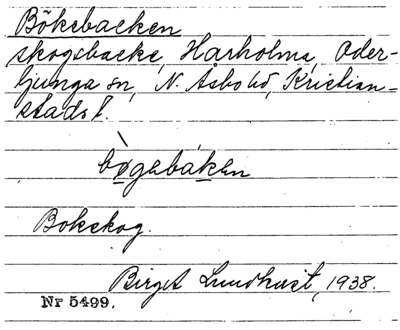 Bökebacken
skogsbacke, Harholma, Oder-
ljunga sn, N. Åsbo hd, Kristian-
stads l.
bø̀gebáken
Bokskog.
Birgit Lundkvist, 1938.
Nr 5499.